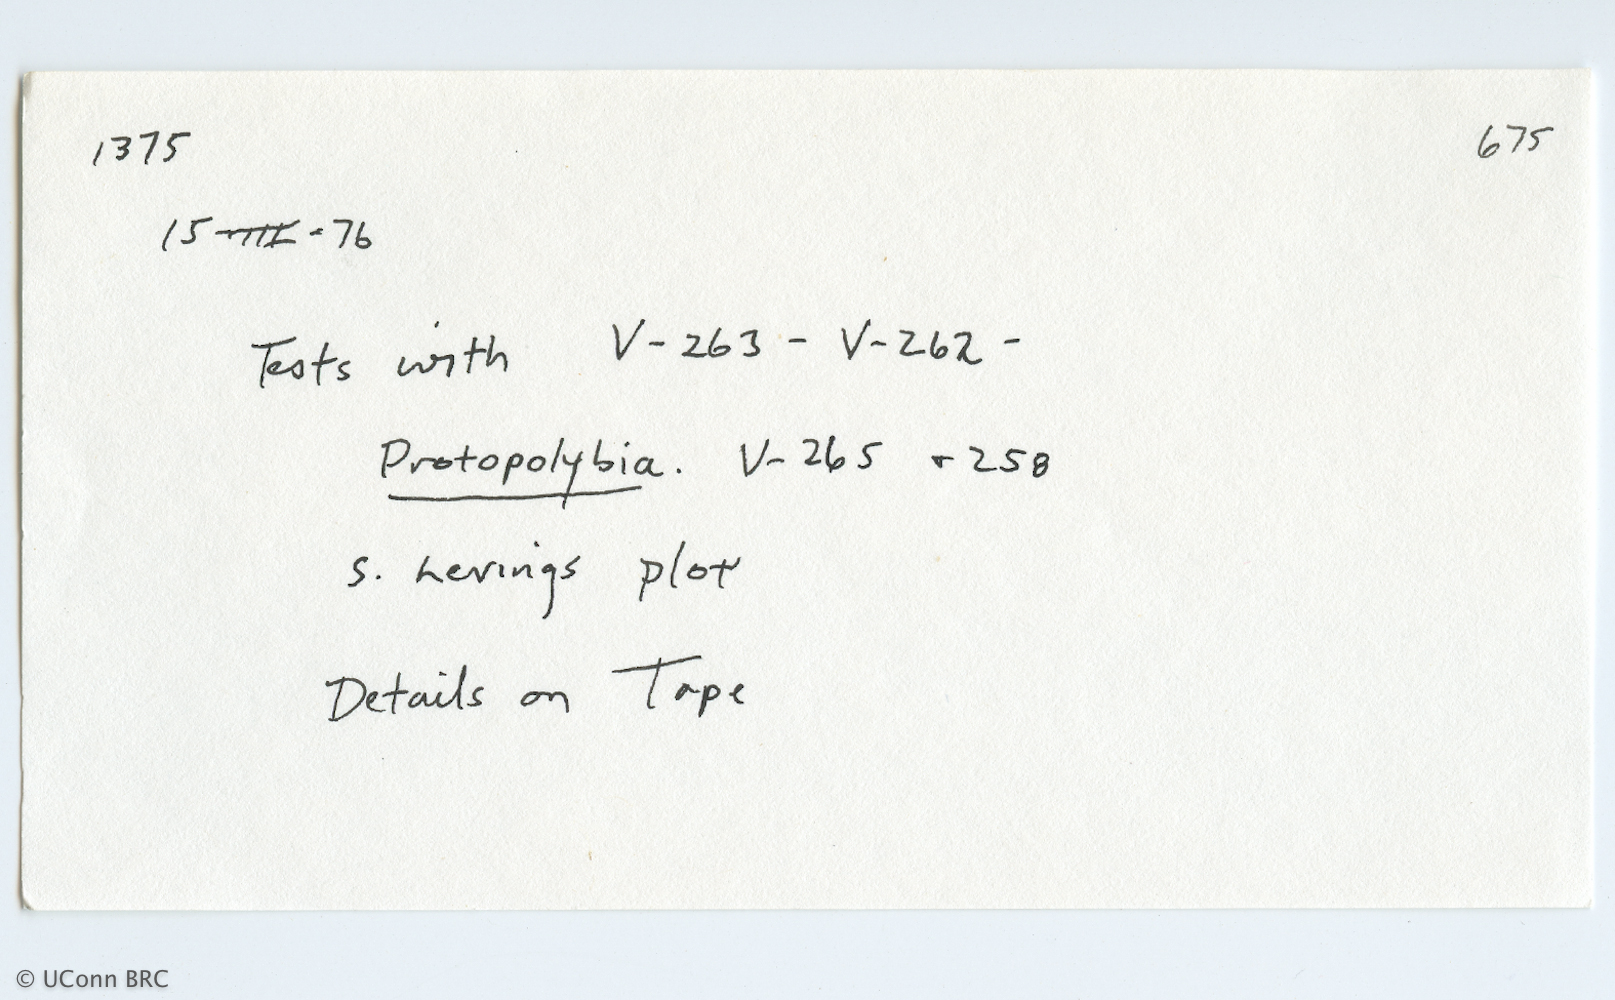 1375
675
15-VIII-76
Tests with V-263 - V-262 -
Protopolybia. V-265 + 258
S. Levings plot
Details on Tape
© UConn BRC